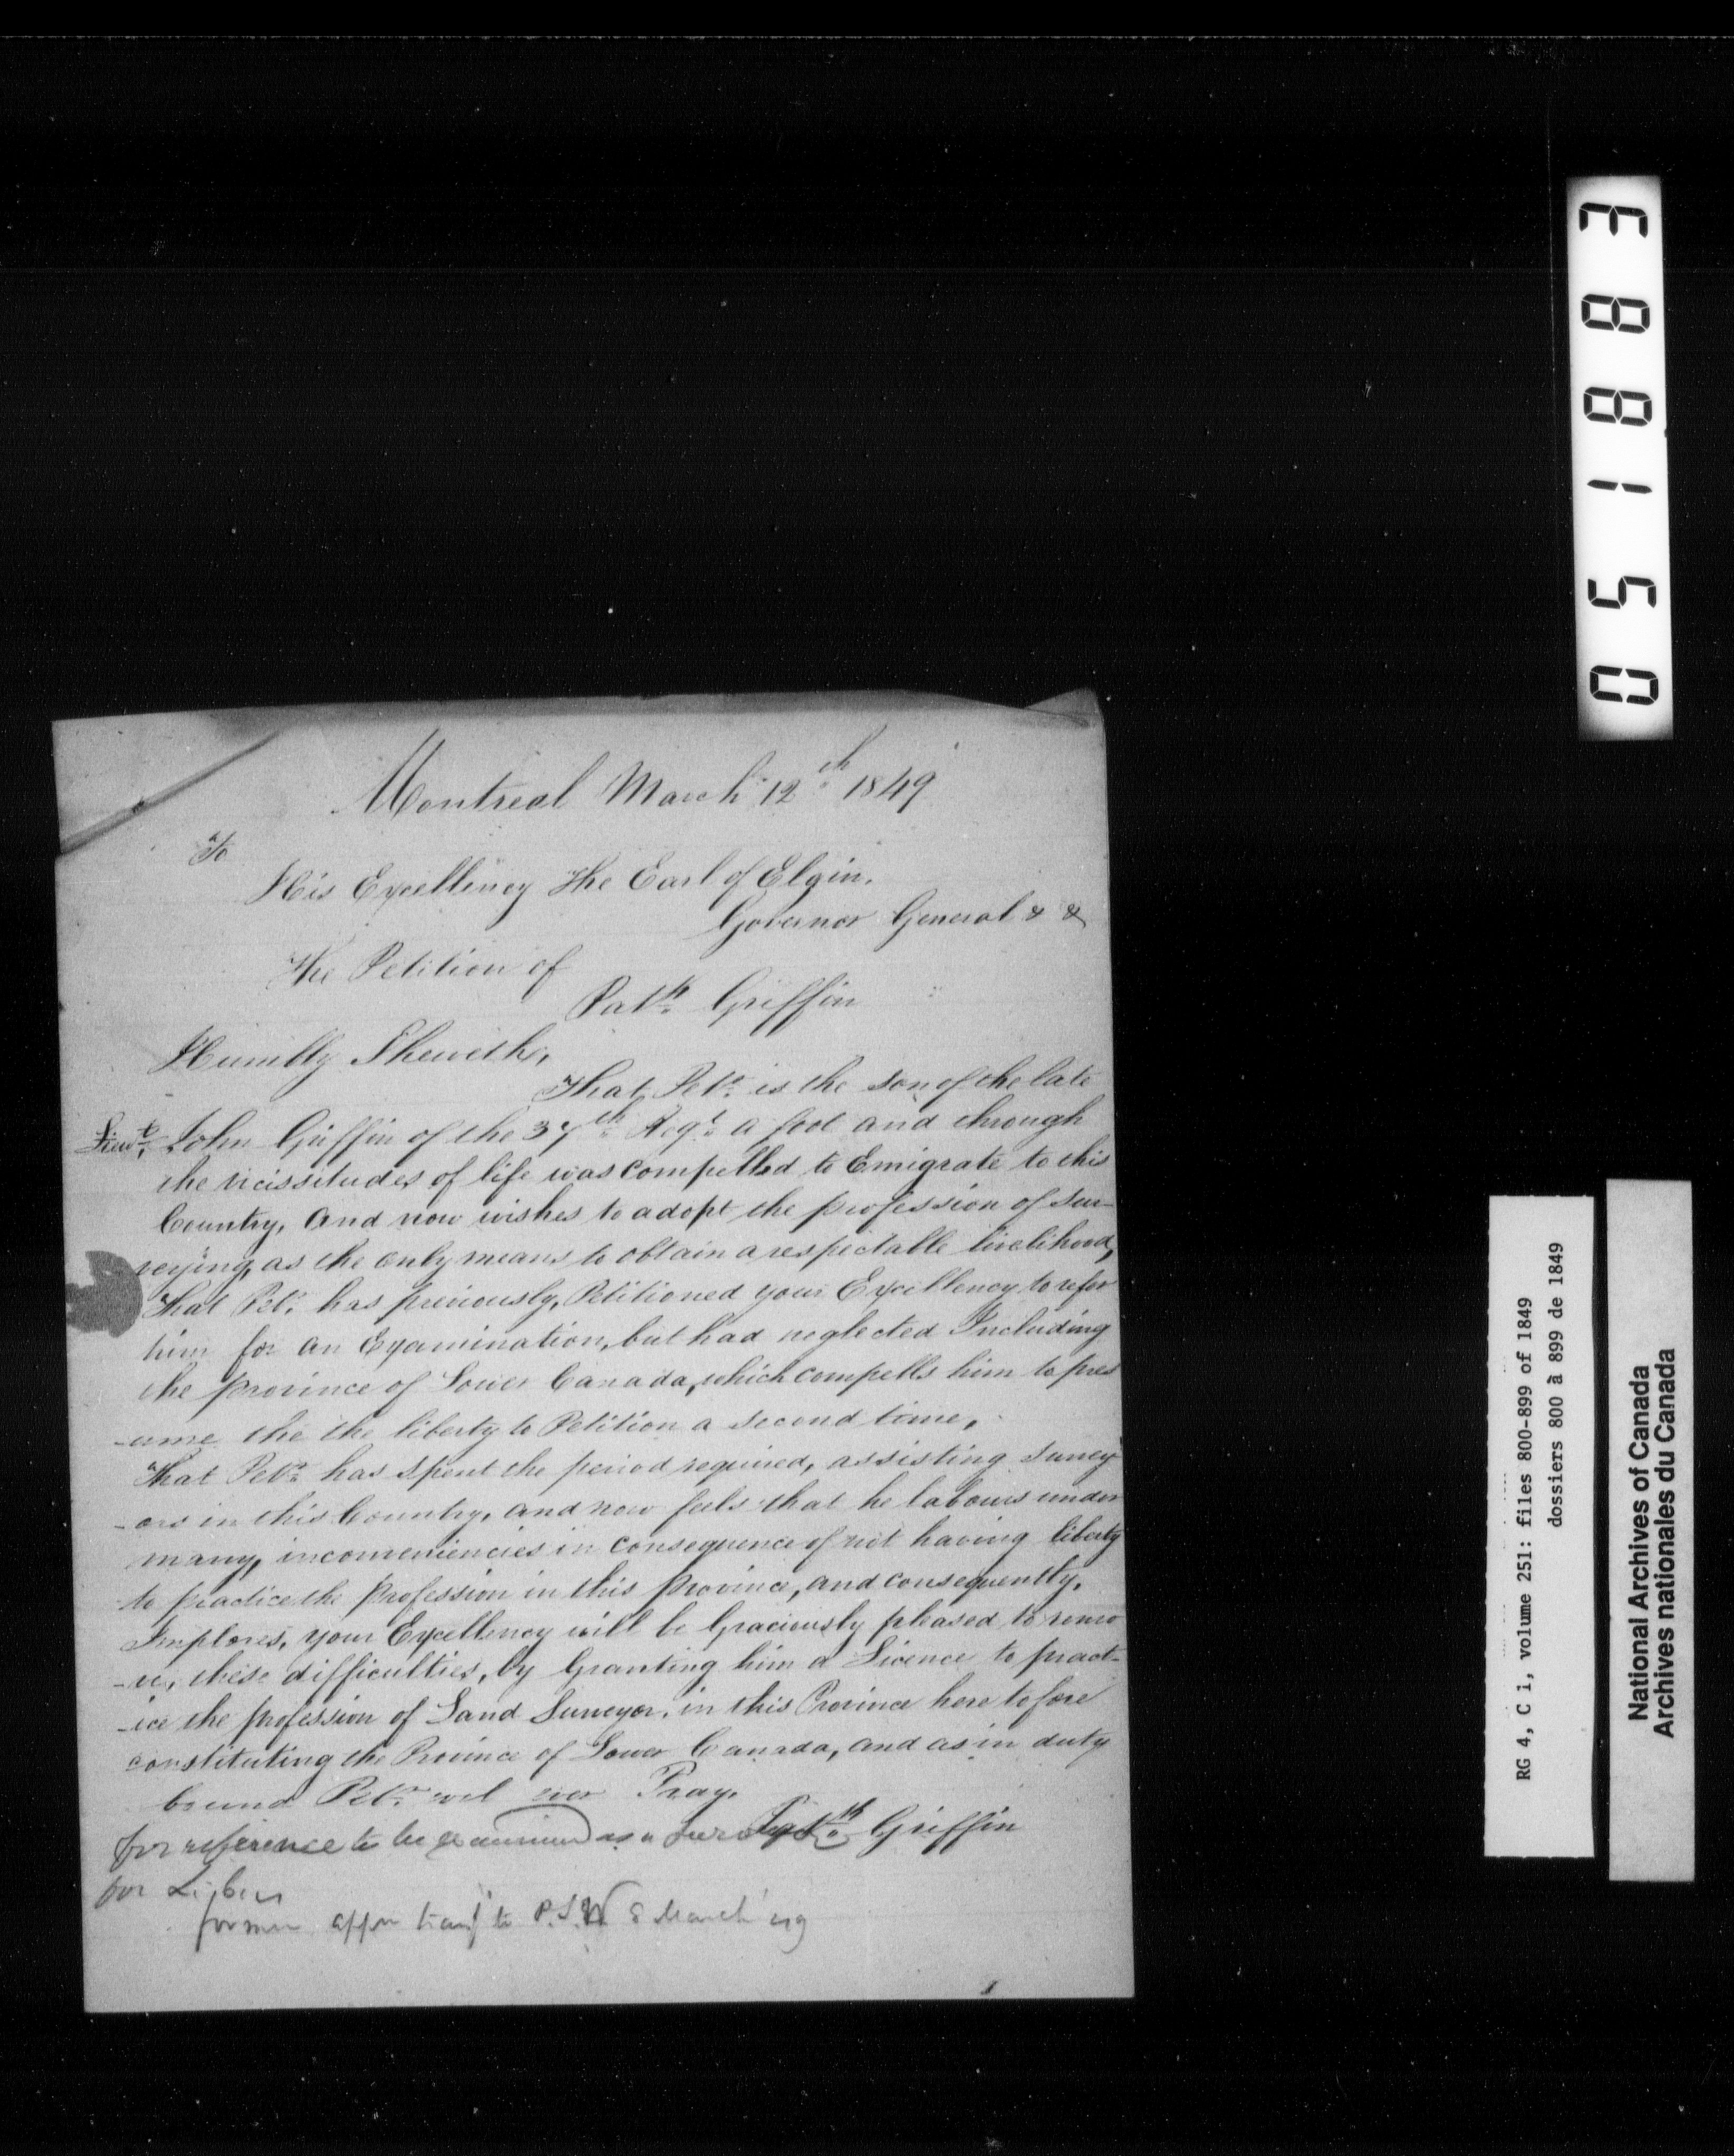 Montreal March 12th 1849
To
His Excellency The Earl of Elgin.
Governor General & &
The Petition of
Patk Griffin
Humbly Sheweth,
That Petr is the son of the late
Lieut John Griffin of the 37th Regt a foot and through
the vicissitudes of life was compelled to Emigrate to this
Country, and now wishes to adopt the profession of Sur-
veying, as the only means to obtain a respectable livelihood,
That Petr has previously, Petitioned your Excellency to refer
him for an Examination, but had neglected Including
the province of Lower Canada, which compells him to pres
-ume the the liberty to Petition a second time,
That Petr has spent the period required, assisting Survey
-ors in this Country, and now feels that he labours under
many, inconveniencies in consequence of not having liberty
to practice the profession in this province, and consequently,
Implores, your Excellency will be Graciously pleased to remo
-ve, these difficulties, by Granting him a Licence to pract-
-ice the profession of Land Surveyor, in this Province here to fore
constituting the Province of Lower Canada, and as in duty
bound Petr wil ever Pray.
Patk Griffin
for reference to be examined as a
for
former appn transf to P.S.W 8 March 49
038150
E
8
8
1
5
0
RG 4, C 1, volume 251: files 800-899 of 1849
dossiers 800 à 899 de 1849
National Archives of Canada
Archives nationales du Canada